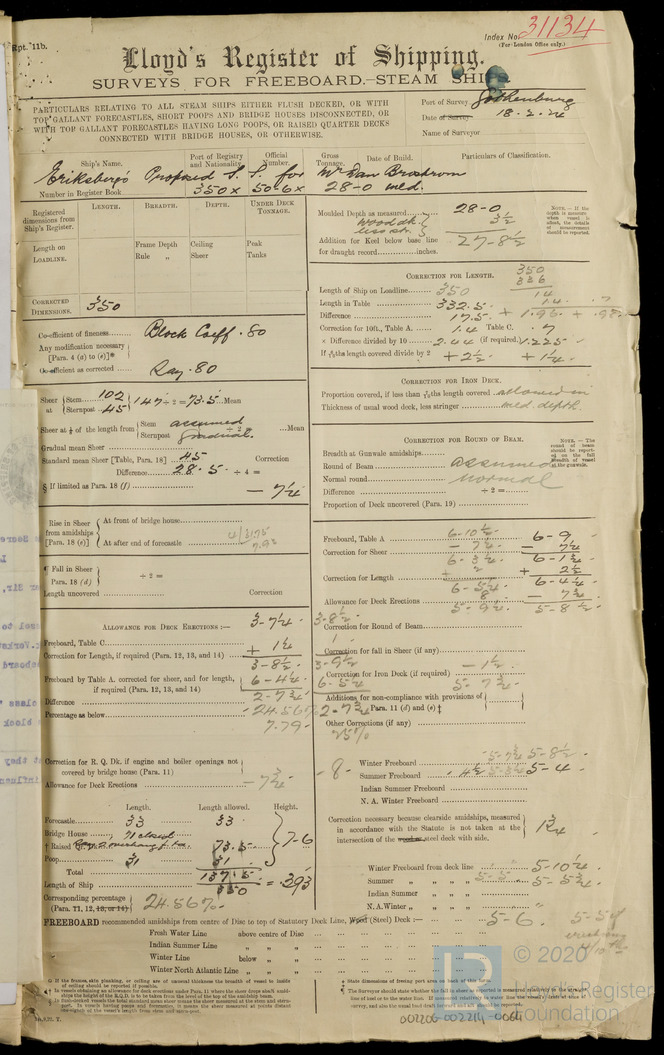 Rpt. 11b.
Index No. 31134
(For London Office only.)
Lloyd's Register of Shipping.
SURVEYS FOR FREEBOARD.—STEAM SHIPS.
PARTICULARS RELATING TO ALL STEAM SHIPS EITHER FLUSH DECKED, OR WITH
TOP GALLANT FORECASTLES, SHORT POOPS AND BRIDGE HOUSES DISCONNECTED, OR
WITH TOP GALLANT FORECASTLES HAVING LONG POOPS, OR RAISED QUARTER DECKS
CONNECTED WITH BRIDGE HOUSES, OR OTHERWISE.
Port of Survey Gothenburg
Date of Survey 18.2.24
Name of Surveyor
Ship's Name. Port of Registry and Nationality. Official Number. Gross Tonnage. Date of Build. Particulars of Classification.
Eriksberg's Proposed S.S. for Mr Dan Brostrom
Number in Register Book 350 x 50.6 x 28-0 mld.
Registered dimensions from Ship's Register. LENGTH. BREADTH. DEPTH. UNDER DECK TONNAGE.
Length on LOADLINE. Frame Depth Ceiling Peak
Rule „ Sheer Tanks
CORRECTED DIMENSIONS. 350
Co-efficient of fineness Block Coeff .80
Any modification necessary [Para. 4 (a) to (e)]*
Co-efficient as corrected Say .80
Sheer at Stem 102 147 ÷ 2 = 73.5 Mean
Sternpost 45
Sheer at 1/8 of the length from Stem assumed
Sternpost gradual. ÷ 2 = Mean
Gradual mean Sheer
Standard mean Sheer [Table, Para. 18] 45 Correction
Difference 28.5 ÷ 4 =
§ If limited as Para. 18 (f) - 7¼
Rise in Sheer from amidships [Para. 18 (e)] At front of bridge house
At after end of forecastle
¶ Fall in Sheer Para. 18 (d) ÷ 2 =
Length uncovered Correction
ALLOWANCE FOR DECK ERECTIONS :—
Freeboard, Table C 3-7¼
Correction for Length, if required (Par. 12, 13, and 14) + 1¼
3-8½
Freeboard by Table A. corrected for sheer, and for length, if required (Par. 12, 13, and 14) 6-4¼
Difference 2-7¾
Percentage as below 24.56%
7.79
Correction for R. Q. Dk. if engine and boiler openings not covered by bridge house (Para. 11)
Allowance for Deck Erections - 7¾
Length. Length allowed. Height.
Forecastle 33 33
Bridge House 71 closed
† Raised 73.5 7-6
Poop 31 31
Total 137.5
Length of Ship 350 = .393
Corresponding percentage (Para. 11, 12, 13, or 14) 24.56%
Moulded Depth as measured 28-0
wood dk. less str. 3½
27-8½
Addition for Keel below base line for draught record inches.
NOTE.—If the depth is measure when vessel is afloat, the details of measurement should be reported.
CORRECTION FOR LENGTH. 350
336
14
Length of Ship on Loadline 350
Length in Table 332.5 14 .7
Difference 17.5 + 1.96 + .98
Correction for 10ft., Table A. 1.4 Table C. .7
× Difference divided by 10 2.44 (if required) 1.225
If 6/10ths length covered divide by 2 + 2½ + 1¼
CORRECTION FOR IRON DECK.
Proportion covered, if less than 7/10ths length covered allowed in
Thickness of usual wood deck, less stringer mld. depth.
CORRECTION FOR ROUND OF BEAM.
Breadth at Gunwale amidships
Round of Beam assumed
Normal round normal
Difference ÷ 2 =
Proportion of Deck uncovered (Para. 19)
Freeboard, Table A 6-10½ 6-9
Correction for Sheer - 7¼ - 7¼
6-3¼ 6-1¾
Correction for Length + 2 + 2½
6-5¼ 6-4¼
Allowance for Deck Erections 8 - 7¾
5-9¼ 5-8½
Correction for Round of Beam
Correction for fall in Sheer (if any)
Correction for Iron Deck (if required) - 1½
5-7¾
Additions for non-compliance with provisions of Para. 11 (d) and (e) ‡
Other Corrections (if any)
3-8½
1
3-9½
6-5¼
2-7¾
25%
8
Winter Freeboard 5-7¾ 5-8½
Summer Freeboard 4½ 5-4
Indian Summer Freeboard
N. A. Winter Freeboard
Correction necessary because clearside amidships, measured in accordance with the Statute is not taken at the intersection of the steel deck with side. 1¾
Winter Freeboard from deck line 5-10¼
Summer „ „ „ „ 5-5 5-5¾
Indian Summer „ „ „
N. A. Winter „ „ „
FREEBOARD recommended amidships from centre of Disc to top of Statutory Deck Line, Wood (Steel) Deck :— 5-6
Fresh Water Line above centre of Disc
Indian Summer Line „ „
Winter Line below „ „
Winter North Atlantic Line „ „
© 2020
Lloyd's Register
Foundation
002206-002214-0064